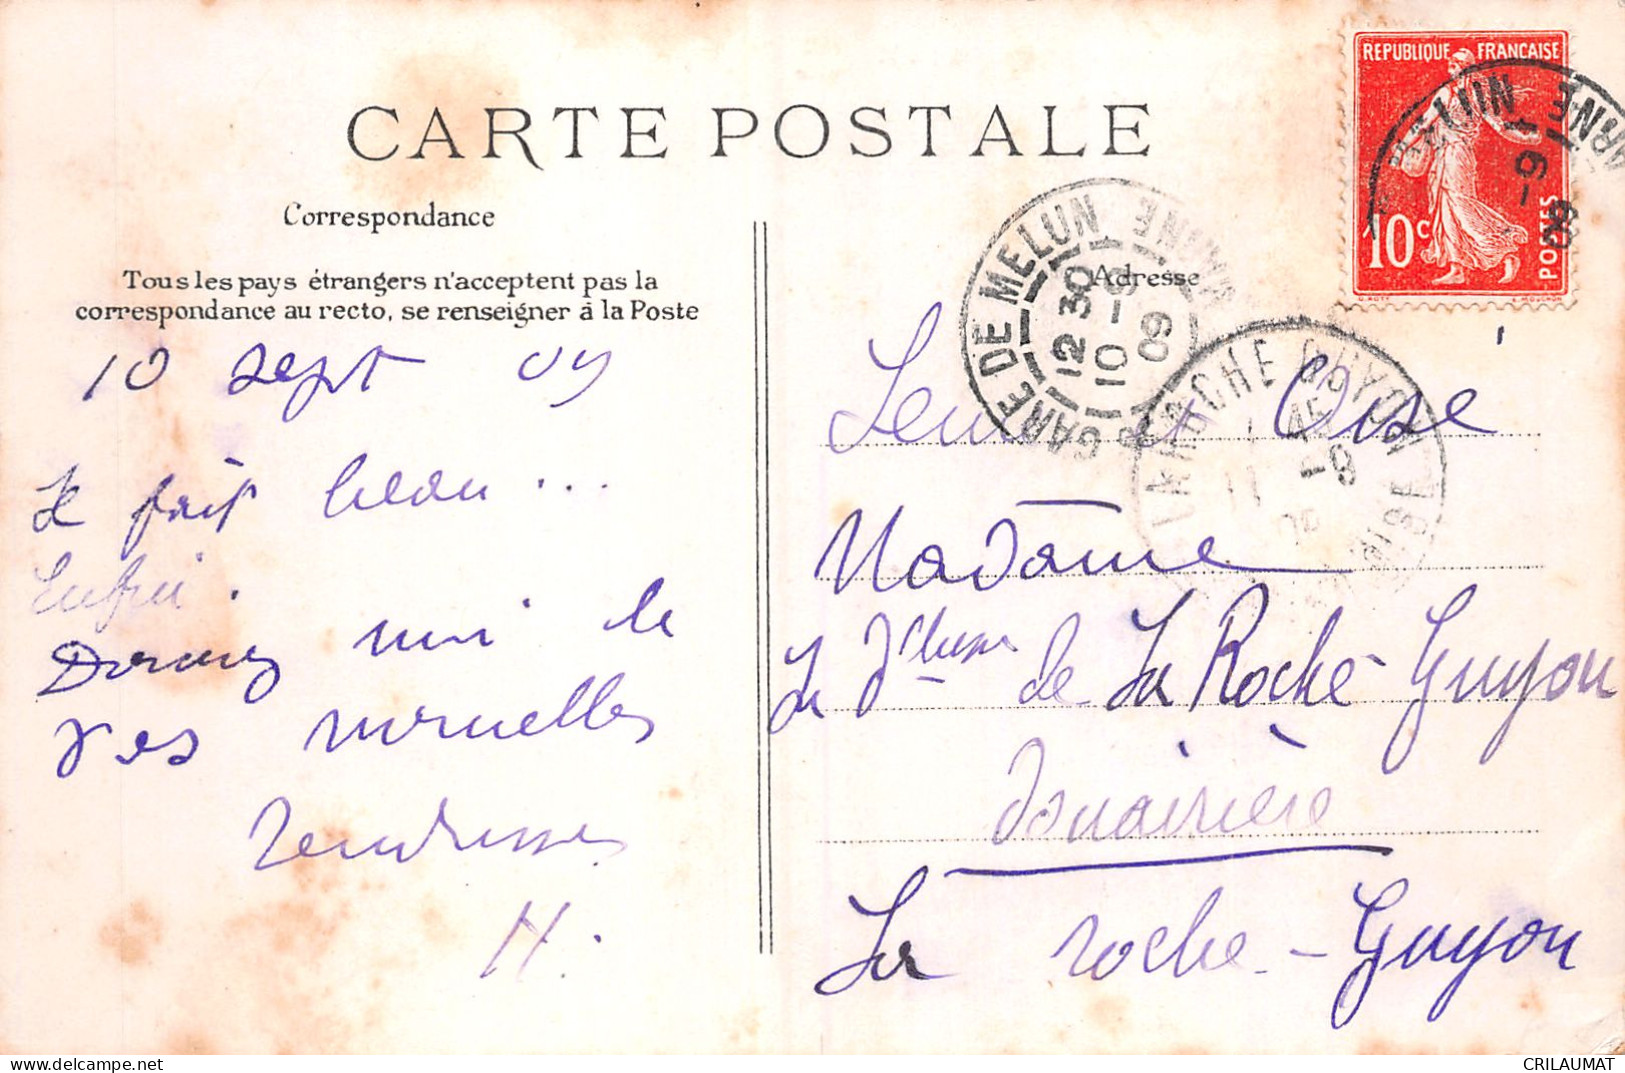 CARTE POSTALE
Correspondance
Tous les pays étrangers n'acceptent pas la
correspondance au recto, se renseigner à la Poste
10 sept 09
Il fait beau...
Enfin.
Donnez moi de
Vos nouvelles
Tendresses
H.
REPUBLIQUE FRANCAISE
10c
POSTES
GARE DE MELUN
12 30
10 - 9
09
Adresse
LA ROCHE GUYON
Seine et Oise
Madame
La Desse de La Roche-Guyon
douairière
La Roche-Guyon
CRILAUMAT